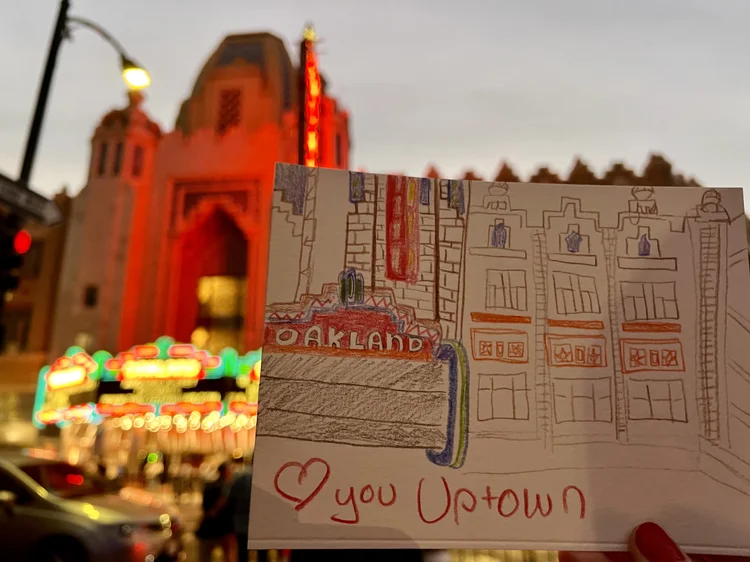 OAKLAND
♡ you Uptown